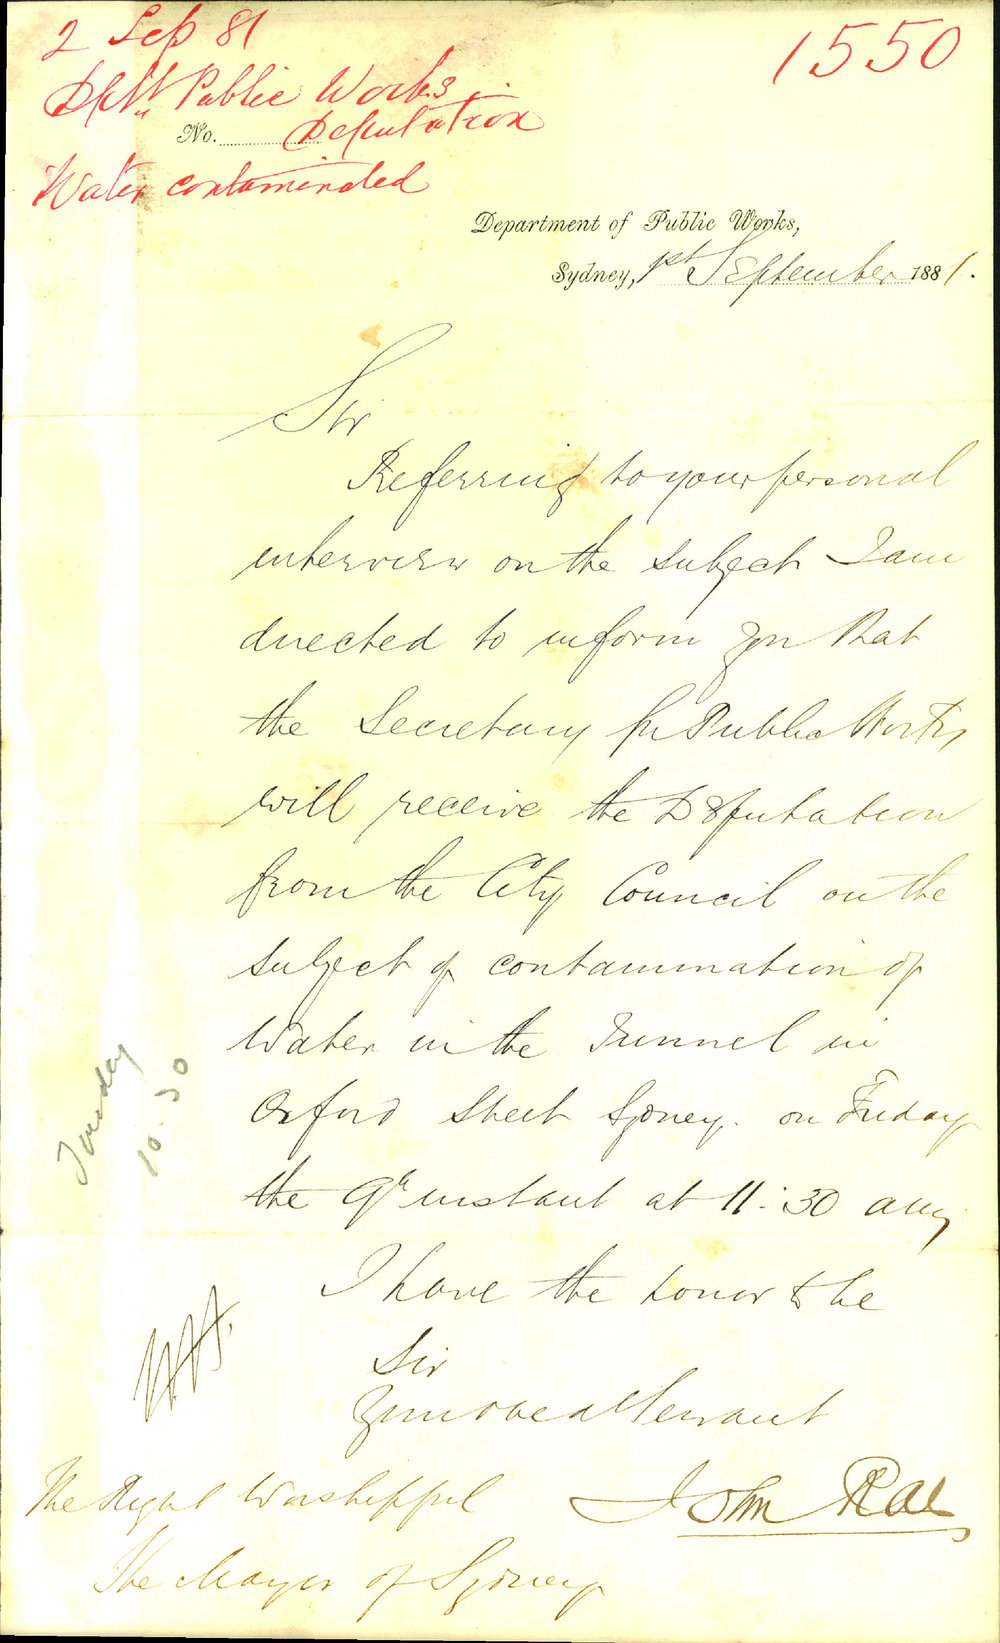 2 Sep 81
1550
Public Works
No. Deputation
Water contaminated
Department of Public Works,
Sydney, 1st September 1881.
Sir
Referring to your personal
interview on the subject I am
directed to inform you that
the Secretary for Public Works,
will receive the Deputation
from the City Council on the
subject of contamination of
Water in the Tunnel in
Oxford Street Sydney. on Friday
the 9th instant at 11:30 am
Tuesday
10.30
I have the honor to be
Sir
Your obed Servant
John Rae
The Right Worshipful
The Mayor of Sydney